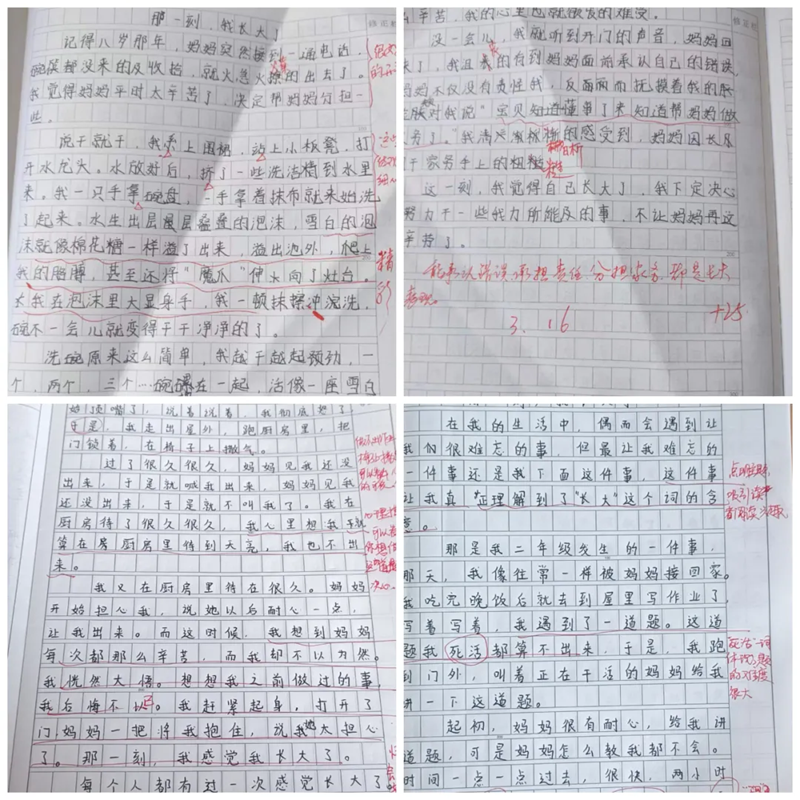 那一刻，我长大了
记得八岁那年，妈妈突然接到一通电话，
碗筷都没来的及收拾，就火急火燎的出去了。
我觉得妈妈平时太辛苦了，决定帮妈妈分担一
些。
说干就干，我系上围裙，站上小板凳，打
开水龙头。水放好后，挤了一些洗洁精到水里
来。我一只手拿碗盘，一手拿着抹布就来始洗
了起来。水生出层层叠叠的泡沫，雪白的泡
沫就像棉花糖一样溢了出来，溢出池外，爬上
我的胳膊，甚至还将“魔爪”伸向了灶台。
我在泡沫里大显身手，我一顿抹擦冲洗，
碗不一会儿就变得干干净净的了。
洗碗原来这么简单，我越干越起劲，一
个，两个，三个…碗叠在一起，活像一座雪白
辛苦，我的心里也就很发的难受。
没一会儿，我就听到开门的声音，妈妈回
来了，我沮丧的有到妈妈面给承认自己的错误，
妈妈不仅没有责怪我，反面而而抚摸着我的胳
膊对我说“宝贝知道懂事了来知道帮妈妈做
家务了。”我清清晰晰的感受到，妈妈因长居
于家务手上的粗糙
这一刻，我觉得自己长大了，我下定决心
努力干一些我力所能及的事，不让妈妈再这
辛苦了。
能承认错误承担责任分担家务，都是长大
表现。
3.16
+25
守是，我走出屋外，跑厨房里，把
门锁着，在椅子上撒气。
过了很久很久，妈妈见我还没
出来，于是就喊我出来，妈妈见我
还没出来，于是就不叫我了。我在
厨房待了很久很久，我心里想我于就
算在房厨房里待到天亮，我也不出
来。
我又在厨房里待在很久。妈妈
开始担心我，说她以后耐心一点，
让我出来。而这时候，我想到妈妈
每次都那么辛苦，而我却不以为然。
我恍然大悟。想想我之前做过的事，
我后悔不以已。我赶紧起身，打开了
门妈妈一把将我抱住，说我她太担心
了。那一刻，我感觉我长大了。
每个人都有过一次感觉长大了
在我的生活中，偶而会遇到让
我们很难忘的事，但最让我难忘的
一件事还是我下面这件事，这件事
让我真正理解到了“长大”这个词的含
意。
点明主题
吸引读者
那是我二年级发生的一件事，
那天，我像往常一样被妈妈接回家。
我吃完晚饭后就去到屋里写作业了，
写着写着，我遇到了一道题。这道
题我死活都算不出来，于是，我跑
到门外，叫着正在干活的妈妈给我
讲一下这道题。
死活一词
很大
起初，妈妈很有耐心，给我讲
道题，可是妈妈怎么教我都不会。
时间一点一点过去，很快，两小时